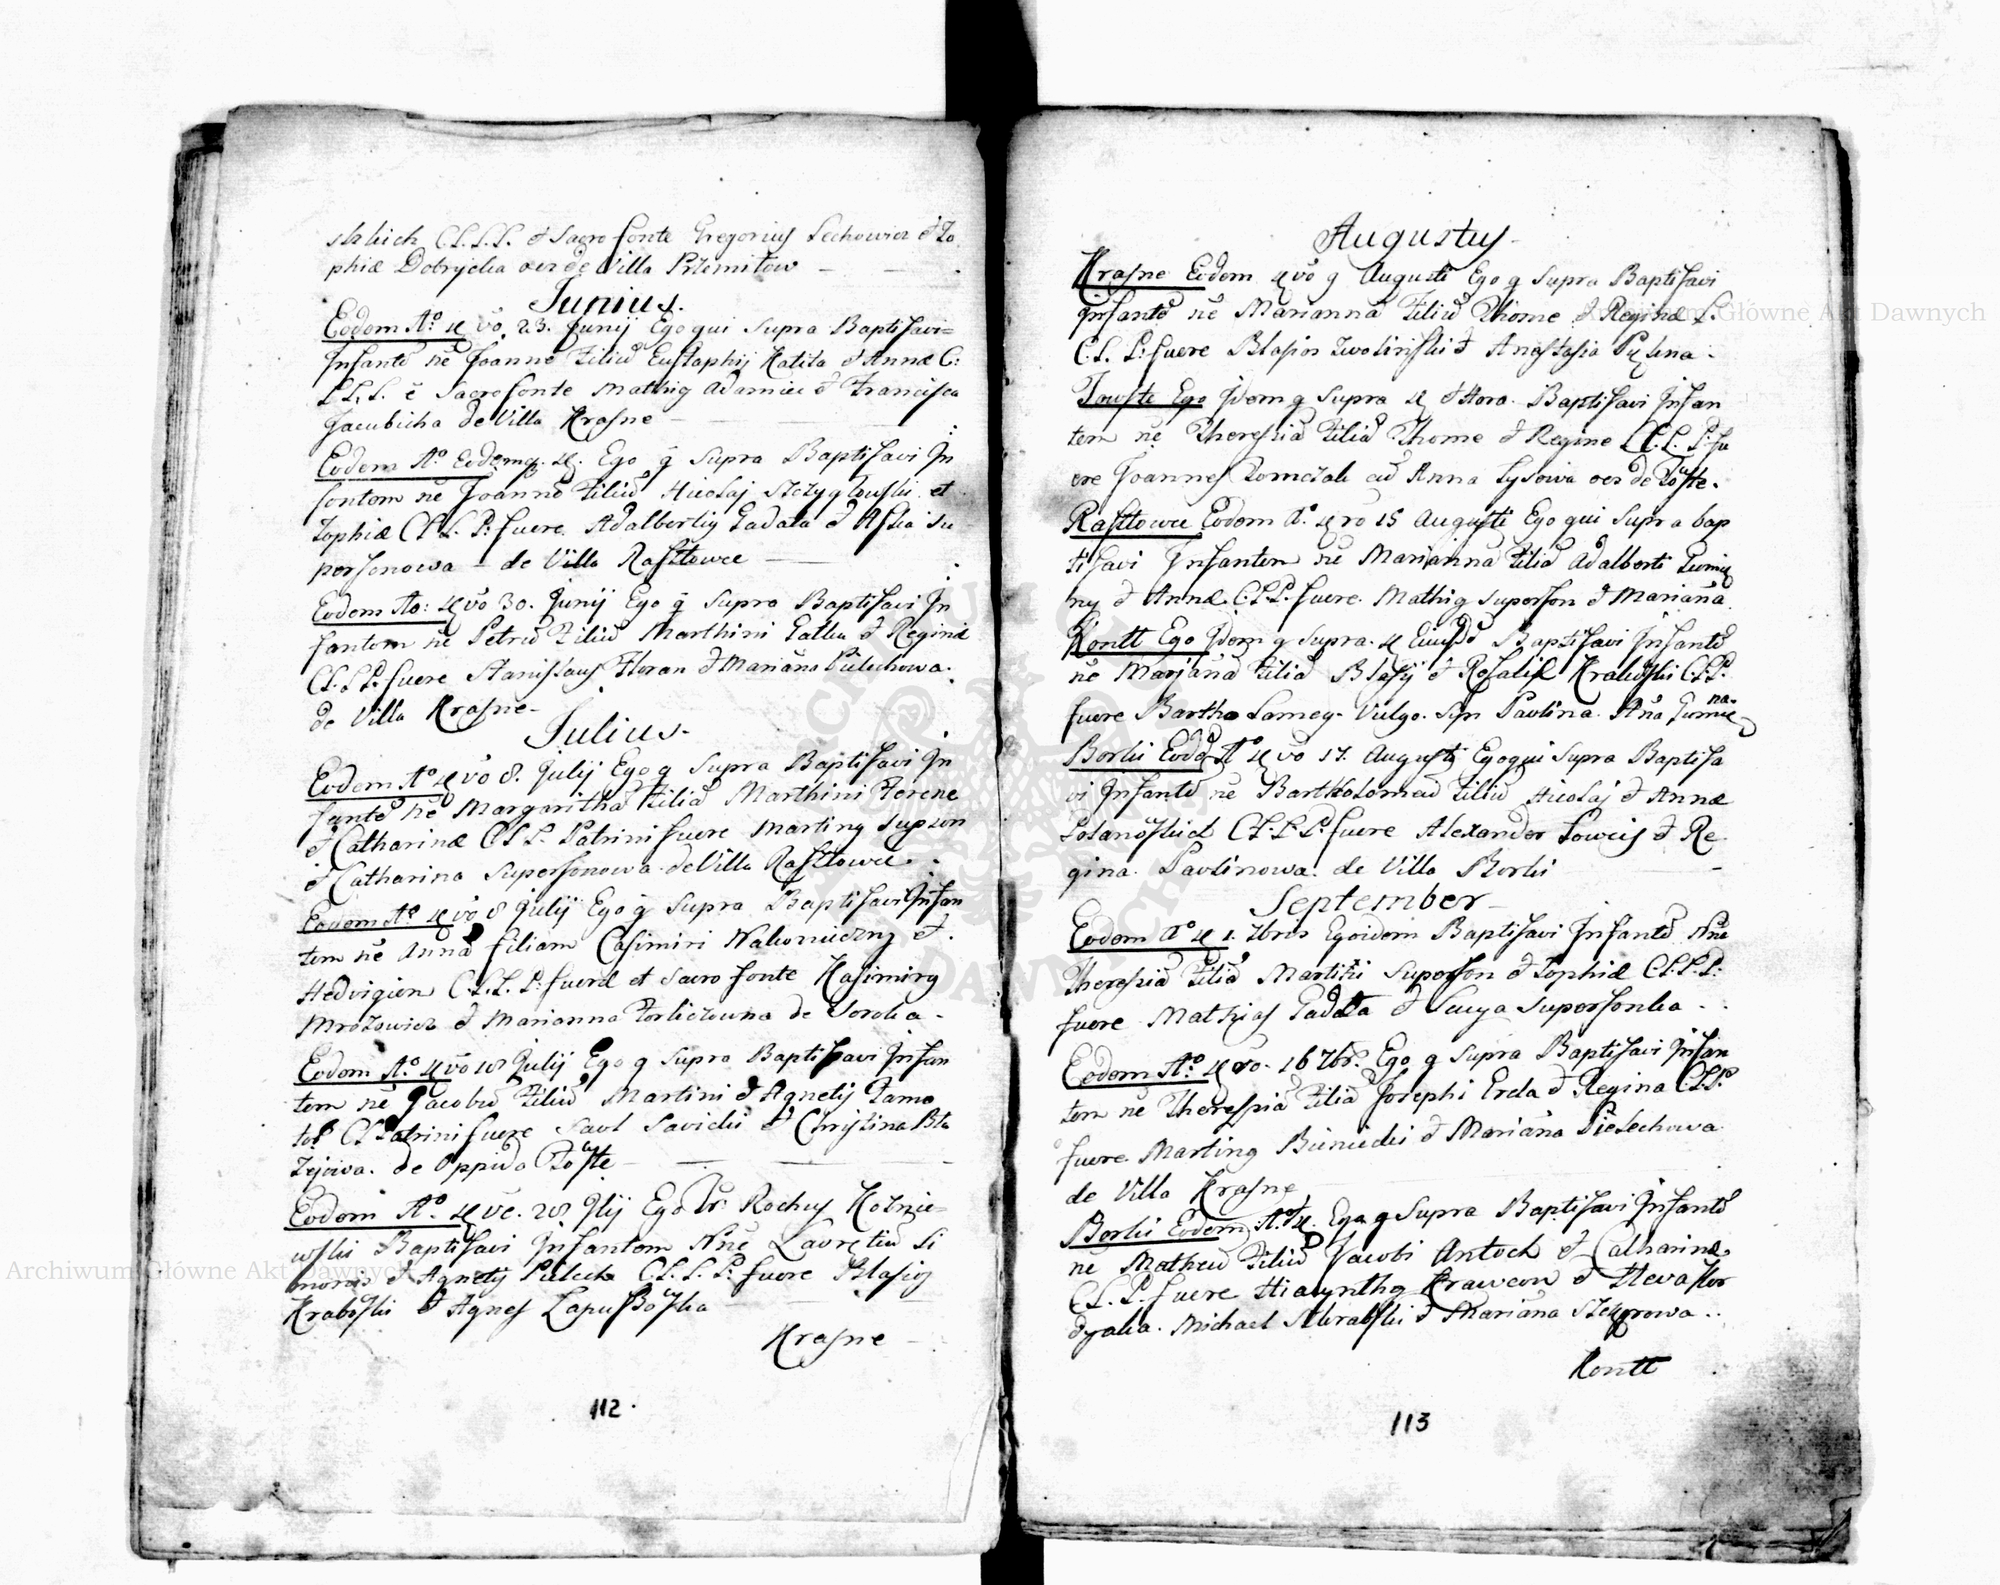 skhich C.L.L.L. et Sacro fonte Gregorius Lechowicz et Zo
phiæ Dobrycka oes de Villa Przemitow
Junius.
Eodem Ao. et vo. 23. Junij Ego qui Supra Baptisavi
Infantē nē Joannē Filiū Eustaphij Kalita et Annæ C:
L.L.L. ē Sacro fonte Mathig Adamiec et Francisca
Jacubicha de Villa Krasne
Eodem Ao. Eodemq. Ego q̄ Supra Baptisavi In
fantem nē Joannē Filiū Nicolaj Szczygłowski et
Zophiæ C.L.L. P: fuere Adalbertig Gadała et su
personowa - de Villa Rasztowce
Eodem Ao: vo 30. Junij Ego q̄ Supra Baptisavi In
fantem nē Petrū Filiū Marthini Gałka et Reginæ
C.L.L.P. fuere Stanislaus Floran et Mariāna Pielechowa.
de Villa Krasne-
Julius.
Eodem Ao vo 8. Julij Ego q Supra Baptisavi In
fantē nē Margarithā Filiā Marthini Ferenc
et Catharinæ C.L.L. Patrini fuere Marting Supson
et Catharina Supersonowa de Villa Rasztowce.
Eodem Ao vo 8 Julij Ego q̄ Supra Baptisavi Infan
tem nē Annā filiam Casimiri Nakonieczny et.
Hedvigien C.L.L. P: fuere et Sacro fonte Kasimirg
Mrozowicz et Marianna de Soroka.
Eodem Ao. vo 18 Julij Ego q Supra Baptisavi Infan
tem nē Jacobū Filiū Martini et Agnetij
C.L. Patrini fuere Savicki et Christina Bła
żejowa. de Oppido Touste
Eodem Ao. 28 Jlij Ego Fr. Rochus Koźnie-
wski Baptisavi Infantem Nnē Lavretiū Si
monis et Agnetij Pielech C.L.L. P: fuere Blasig
Krakoski et Agnes
Krasne
112.
Augustus
Krasne Eodem vo 9 Augusti Ego q Supra Baptisavi
Infantē nē Mariannā Filiā Thome et Reginæ L.
C.L. P: fuere Blasios Zwolinski et Anastasia
Towste Ego Idem q Supra et Hora. Baptisavi Infan
tem nē Theresiā Filiā Thome et Regine C.L. P: fu
ere Joannes Tomczak cū Anna Lysowa oes de Touste.
Rasztowce Eodem Ao. vo 15 Augusti Ego qui Supra bap
tisavi Infantem nē Mariannā Filiā Adalberti
ny et Annæ C.L.L.P. fuere. Mathig Superson et Mariāna
Kontt Ego Idem q Supra. Baptisavi Infantē
nē Marjānā Filiā Blasij et Rosaliæ Krakoski C.L.P.
fuere Bartho Lomeg. Vulgo. Syn Pavlina. Aña
Borki Eodē Ao vo 17. Augusti Ego qui Supra Baptisa
vi Infantē nē Bartholomeū Filiū Nicolaj et Annæ
C.L.L.P: fuere Alexander et Re
gina. Pavlinowa de Villa Borki
September
Eodem Ao 1. 7bris Ego idem Baptisavi Infantē Nnē
Theresiā Filiā Martini Superson et Zophiæ C.L.L.L:
fuere Mathias Gadała et Supersonka
Eodem Ao. vo. 16 7br. Ego q Supra Baptisavi Infan
tem nē Theresiā Filiā Josephi Ercla et Regina C.L.P.
fuere Marting et Mariāna Pielechowa
de Villa Krasne
Borki Eodem Ao Ego q Supra Baptisavi Infantē
nē Matheū Filiū Jacobi Antoch et Catharinæ
C.L.P. fuere Hiacynthg Krawcon et
Michael et Mariāna
Kontt
113
Archiwum Główne Akt Dawnych
Archiwum Główne Akt Dawnych